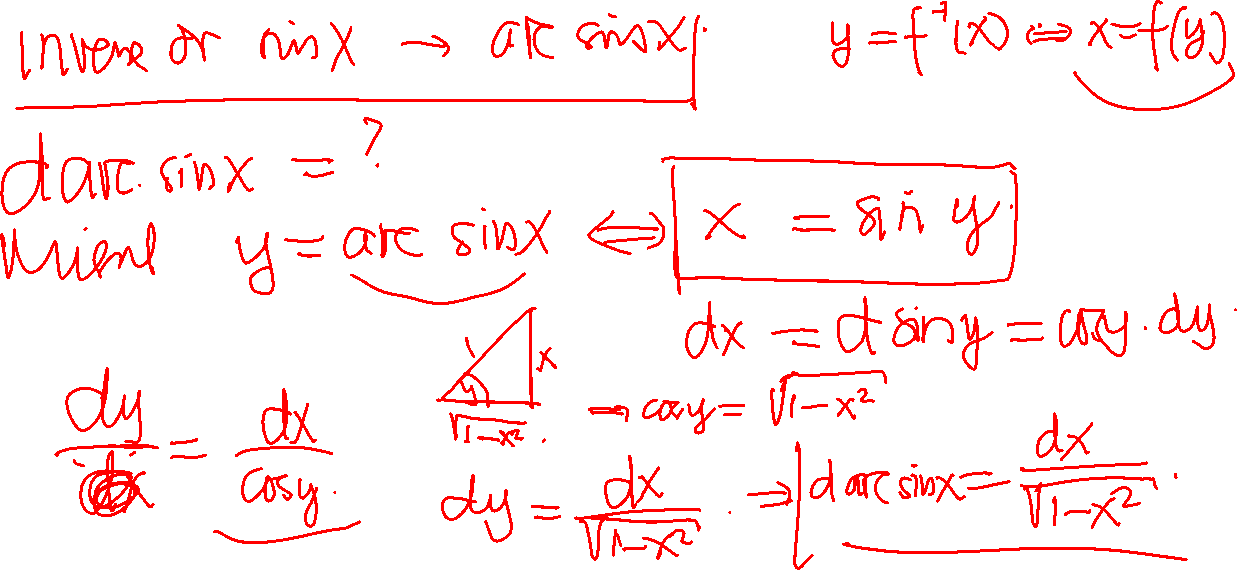 inverse of sin x → arc sin x. y = f⁻¹(x) ⇔ x = f(y)
d arc. sin x = ?
y = arc sin x ⇔ x = sin y.
dx = d sin y = cos y. dy.
1 x y √1-x². → cos y = √1-x²
dy/dx = dx/cos y. dy = dx/√1-x². ⇒ d arc sin x = dx/√1-x².